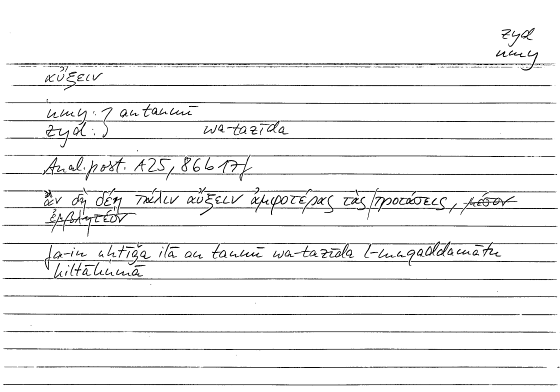 zyd
nmy
αὔξειν
nmy : } an tanmī
zyd : } wa-tazīda
Anal. post. A25, 86b 17f
ἂν δὴ δέῃ πάλιν αὔξειν ἀμφοτέρας τὰς προτάσεις, μέσον
ἐμβλητέον
fa-in uḥtīǧa ilā an tanmī wa-tazīda l-muqaddamātu
kiltāhumā